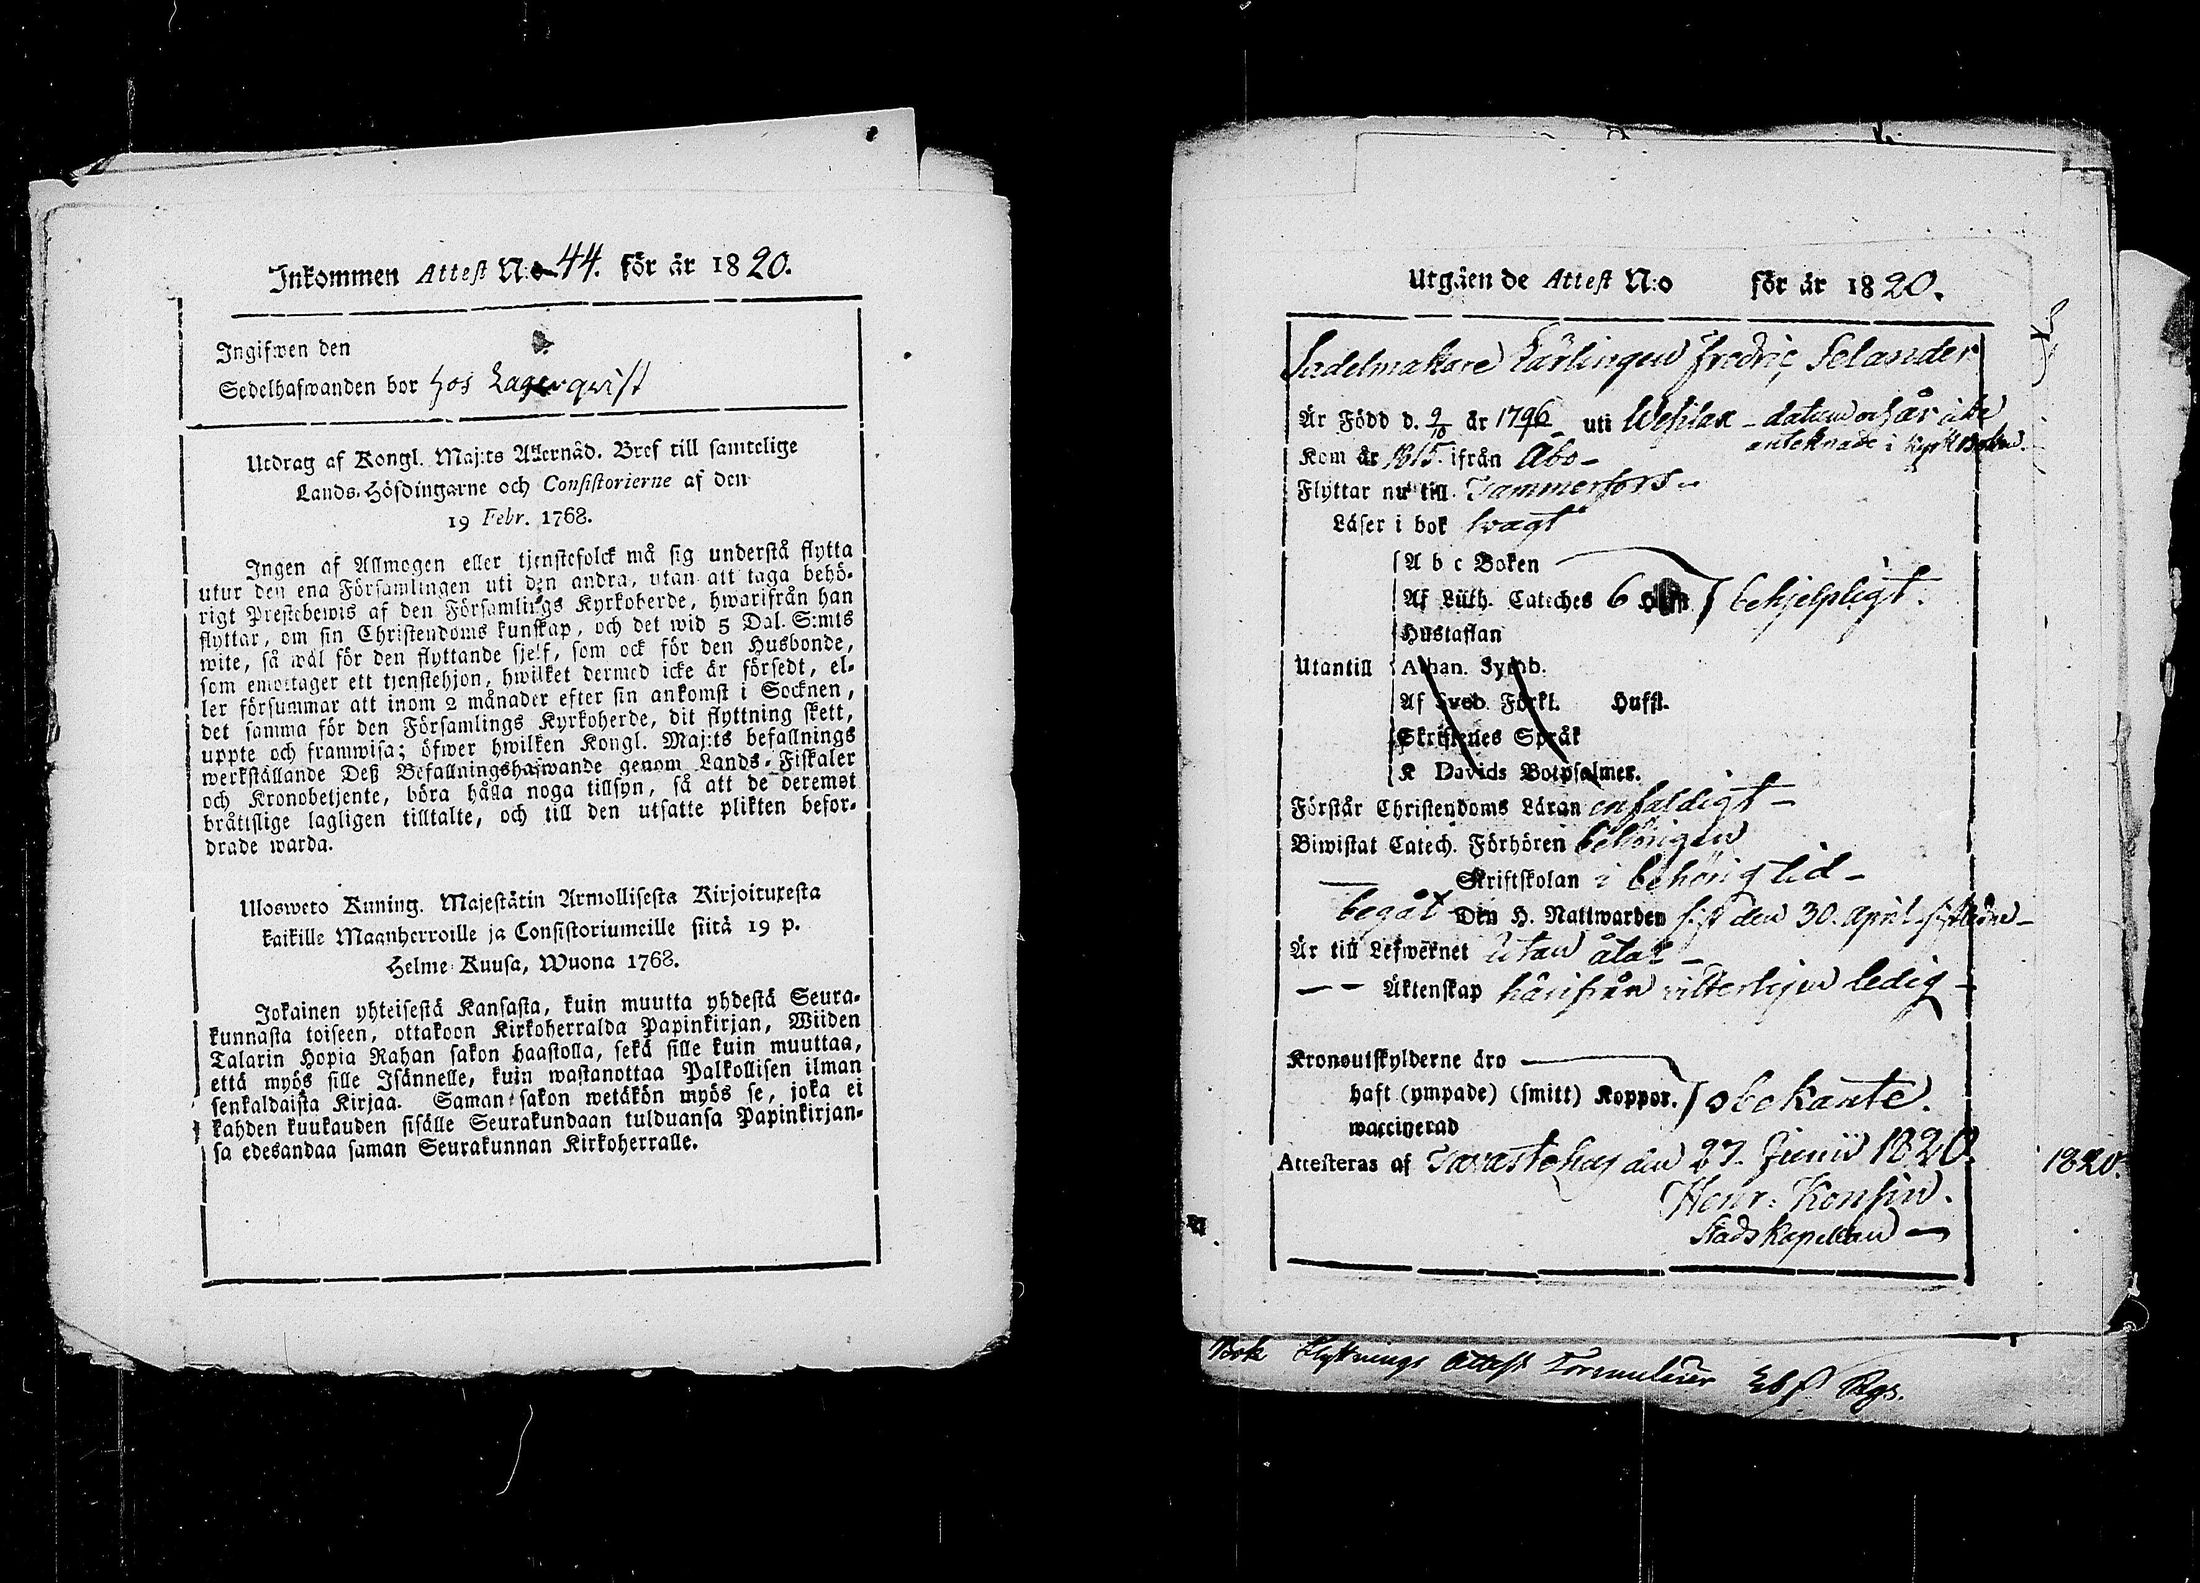 Inkommen Attest N:o 44. för år 1820.
Ingifwen den
Sedelhafwanden bor hos Lagerqvist
Utdrag af Kongl. Maj:ts Allernåd. Bref till samtelige
Lands-Höfdingarne och Consistorierne af den
19 Febr. 1768.
Ingen af Allmogen eller tjenstefolck må sig understå flytta
utur den ena Församlingen uti den andra, utan att taga behö-
rigt Prestebewis af den Församlings Kyrkoherde, hwarifrån han
flyttar, om sin Christendoms kunskap, och det wid 5 Dal. S:mts
wite, så wäl för den flyttande sjelf, som ock för den Husbonde,
som emottager ett tjenstehjon, hwilket dermed icke är försedt, el-
ler försummar att inom 2 månader efter sin ankomst i Socknen,
det samma för den Församlings Kyrkoherde, dit flyttning skett,
uppte och framwisa; öfwer hwilken Kongl. Maj:ts befallnings
werkställande Deß Befallningshafwande genom Lands-Fiskaler
och Kronobetjente, böra hålla noga tillsyn, så att de deremot
bråttslige lagligen tilltalte, och till den utsatte plikten befor-
drade warda.
Ulosweto Kuning. Majestätin Armollisesta Kirjoituxesta
kaikille Maanherroille ja Consistoriumeille siitä 19 p.
Helme-Kuusa, Wuona 1768.
Jokainen yhteisestä Kansasta, kuin muutta yhdestä Seura-
kunnasta toiseen, ottakoon Kirkoherralda Papinkirjan, Wiiden
Talarin Hopia Rahan sakon haastolla, sekä sille kuin muuttaa,
että myös sille Isännelle, kuin wastanottaa Palkollisen ilman
senkaldaista Kirjaa. Saman sakon wetäkön myös se, joka ei
kahden kuukauden sisälle Seurakundaan tulduansa Papinkirjan-
sa edesandaa saman Seurakunnan Kirkoherralle.
Utgåen de Attest N:o för år 1820.
Sadelmakare Lärlingen Fredric Selander
Är Född d. 9/10 år 1796 uti Wesilax - datum och år icke
antecknade i kyrkboken.
Kom år 1815. ifrån Åbo -
Flyttar nu till Tammerfors -
Läser i bok svagt
A b c Boken
Af Luth. Cateches 6 behjelpligt.
Hustaflan
Utantill Athan. Symb.
Af Sveb. Förkl. Huffl.
Skriftenes Språk
K Davids Botpsalmer.
Förstår Christendoms Läran enfaldigt -
Biwistat Catech. Förhören behörigen
Skriftskolan i behörig tid -
begåt Den H. Nattwarden sist den 30. April sistledne -
Är till Lefwernet utan åtal -
Äktenskap härifrån vitterligen ledig -
Kronoutskylderne äro
haft (ympade) (smitt) Koppor. obekante.
waccinerad
Attesteras af Tavastehus den 27. Junii 1820.
1820.
Henr: Konsin.
Stadskapellan -
Bok Flyttnings Attest Formulairer